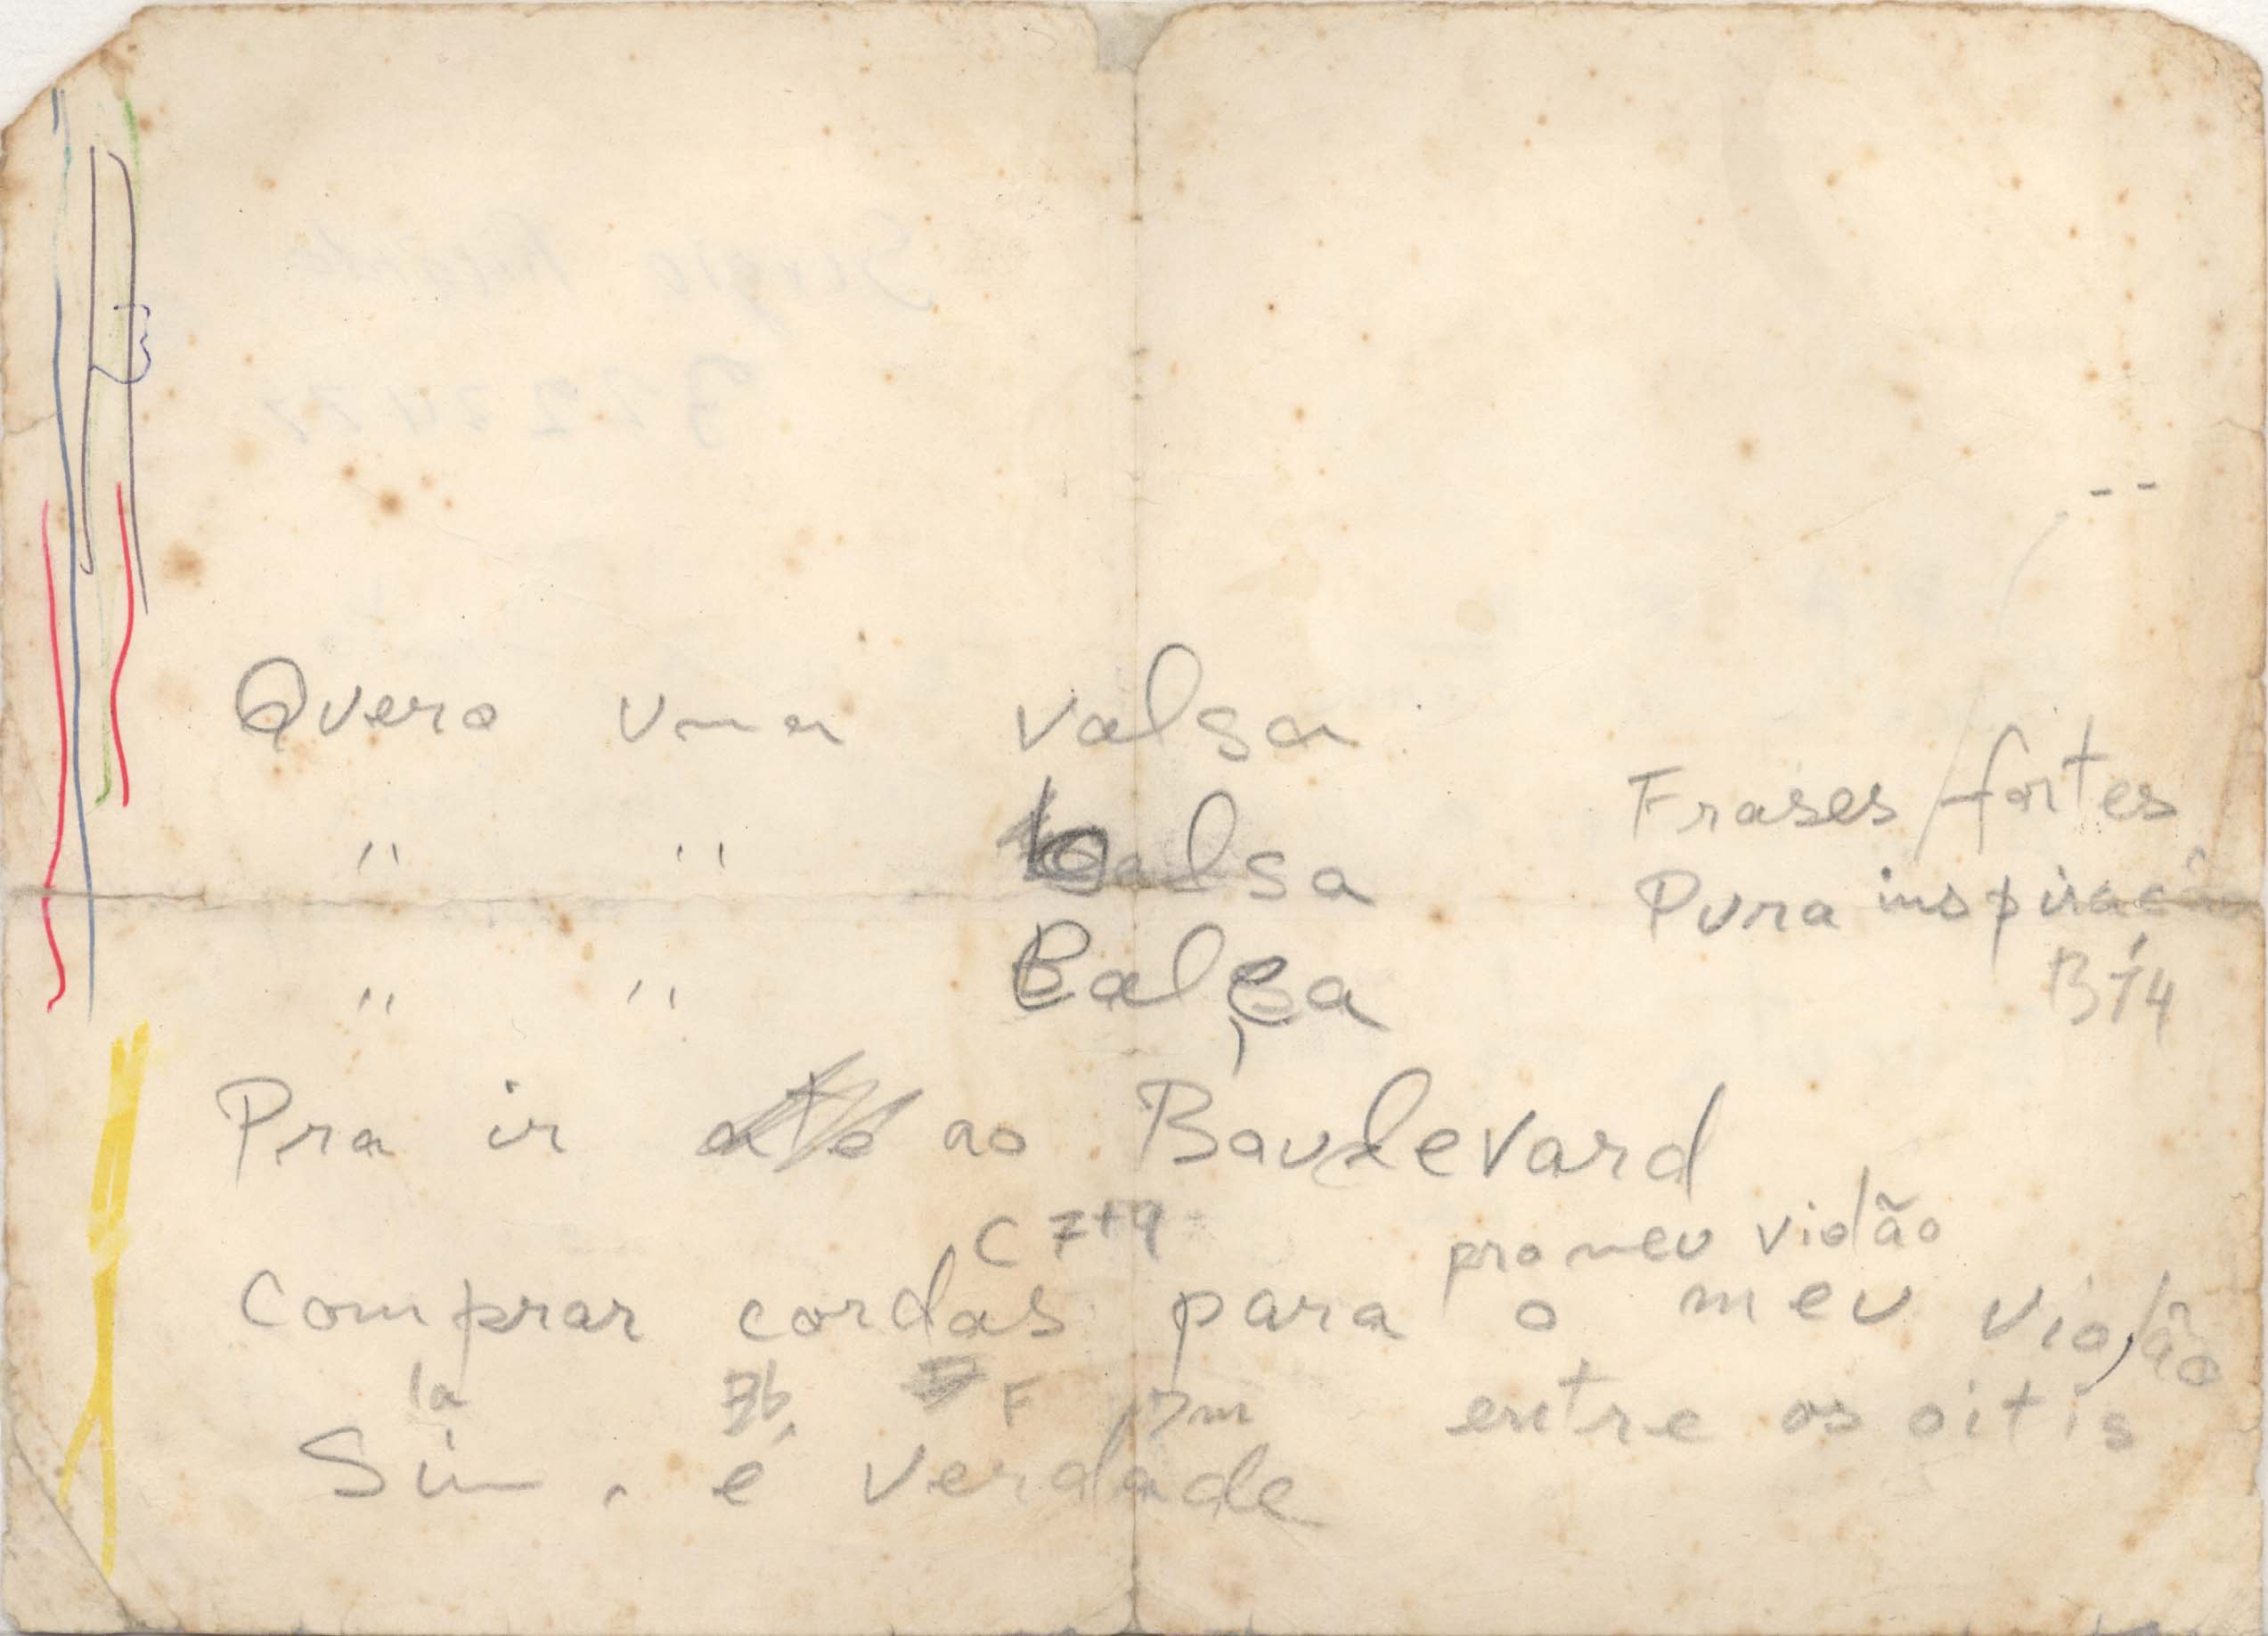 Quero uma valsa
" " balsa
" " Balça
Frases fortes
Pura inspiração
B74
Pra ir até ao Boulevard
C 7+9
pro meu violão
Comprar cordas para o meu violão
la Bb F Dm
entre os oitis
Sim, é verdade